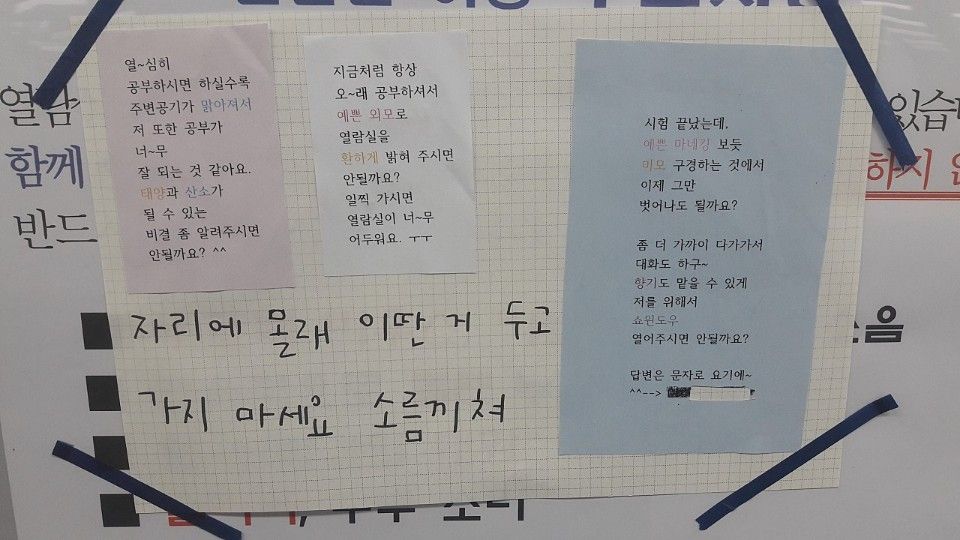 열~심히
공부하시면 하실수록
주변공기가 맑아져서
저 또한 공부가
너~무
잘 되는 것 같아요.
태양과 산소가
될 수 있는
비결 좀 알려주시면
안될까요? ^^
지금처럼 항상
오~래 공부하셔서
예쁜 외모로
열람실을
환하게 밝혀 주시면
안될까요?
일찍 가시면
열람실이 너~무
어두워요. ㅜㅜ
시험 끝났는데,
예쁜 마네킹 보듯
미모 구경하는 것에서
이제 그만
벗어나도 될까요?
좀 더 가까이 다가가서
대화도 하구~
향기도 맡을 수 있게
저를 위해서
쇼윈도우
열어주시면 안될까요?
답변은 문자로 요기에~
^^-->
자리에 몰래 이딴 거 두고
가지 마세요 소름끼쳐
열람
있습니
함께
하지 않
반드
소음
소리